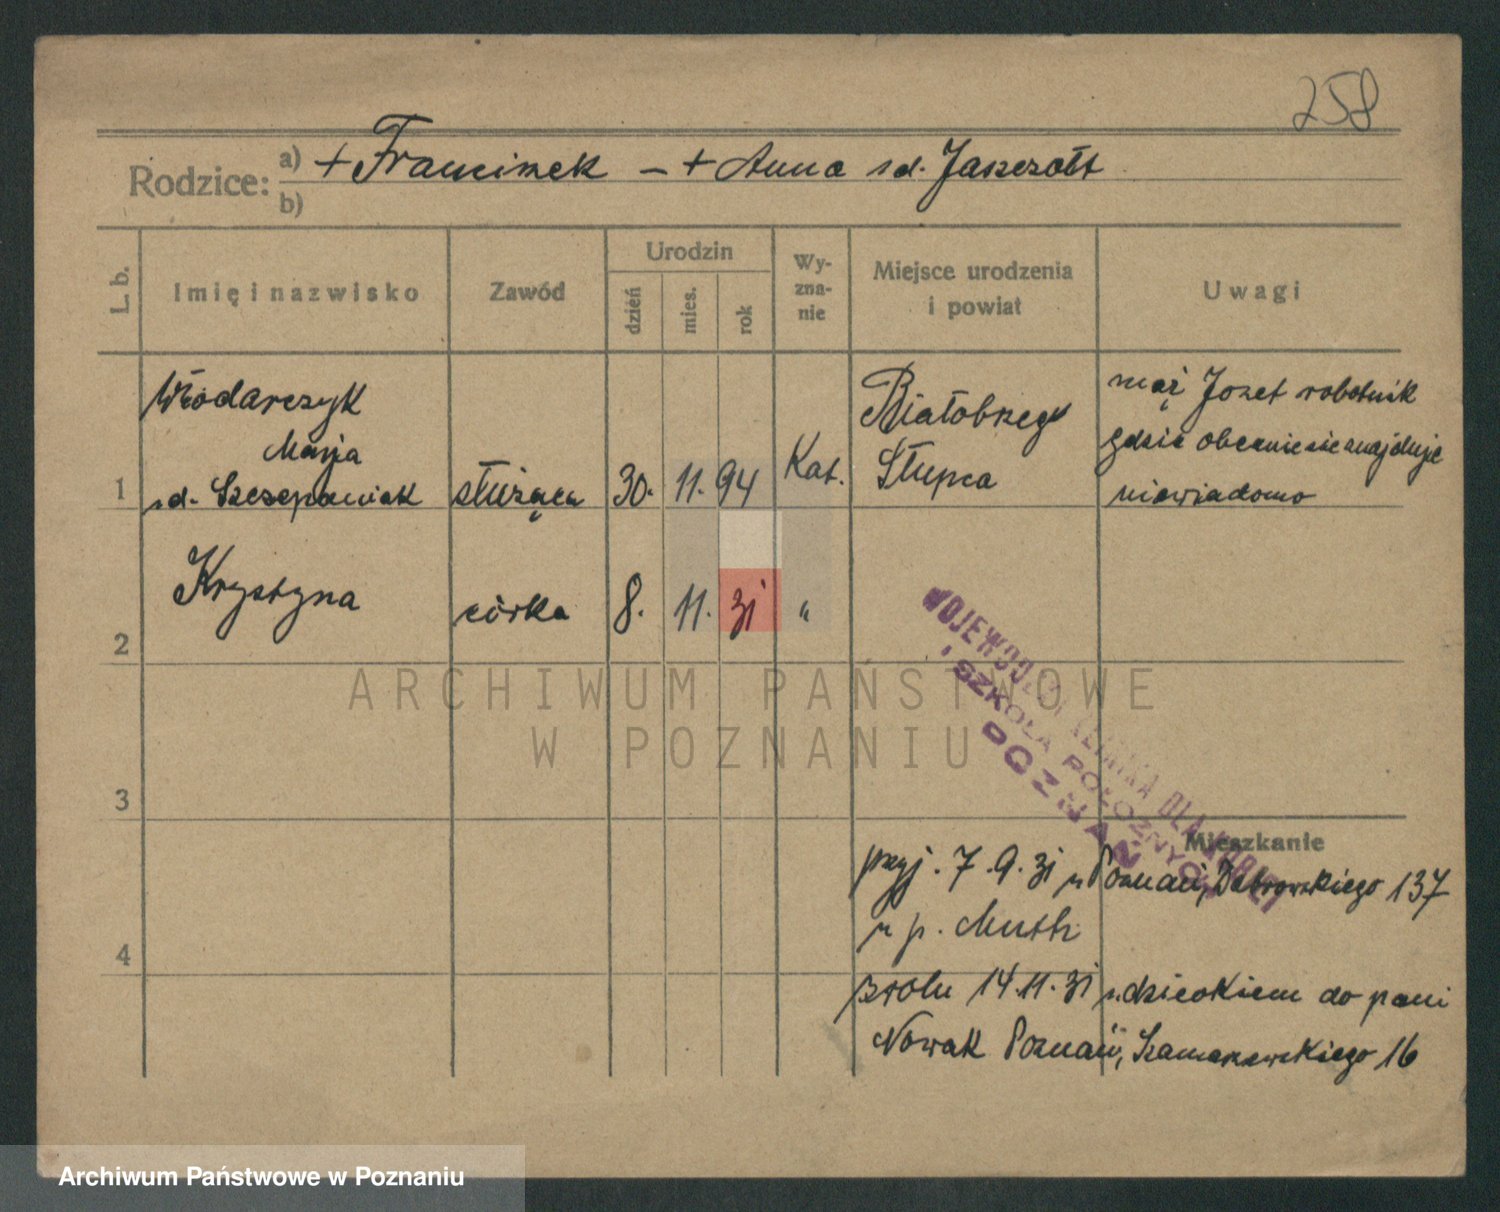 258
Rodzice: a) + Franciszek – + Anna sd. Jaszczołt
b)
L. b.
Imię i nazwisko
Zawód
Urodzin
dzień
mies.
rok
Wy-
zna-
nie
Miejsce urodzenia
i powiat
Uwagi
1
Włodarczyk
Marja
sd. Szczepaniak
służąca
30. 11. 94
Kat.
Białobrzegi
Słupca
mąż Jozef robotnik
gdzie obecnie sie znajduje
niewiadomo
2
Krystyna
córka
8. 11. 31
"
WOJEWÓDZKA KLINIKA DLA KOBIET
I SZKOŁA POŁOŻNYCH
POZNAŃ
3
Mieszkanie
przyj. 7.9.31 z Poznań, Dabrowskiego 137
u p. Muth
4
14.11.31 z dzieckiem do pani
Nowak Poznań, Szamarzewskiego 16
ARCHIWUM PAŃSTWOWE
W POZNANIU
Archiwum Państwowe w Poznaniu